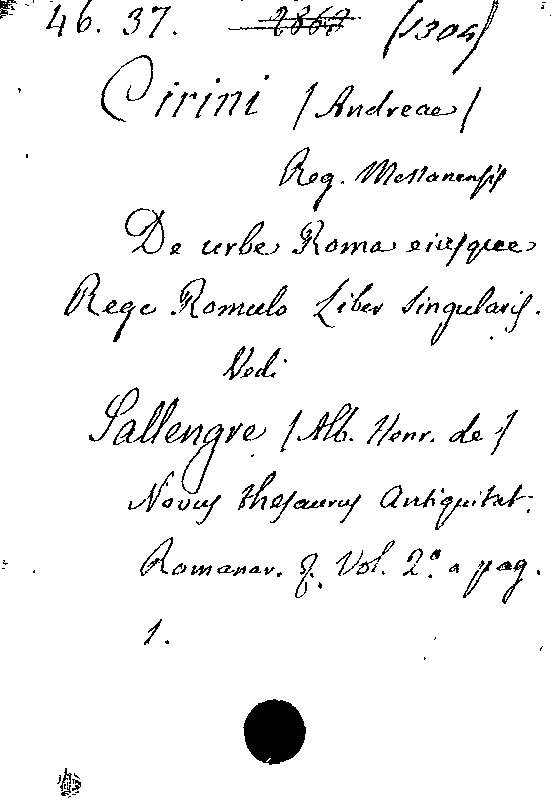 46. 37. 2868 (1304)
Cirini (Andreae)
Reg. Messanensis
De urbe Roma eiusque
Rege Romulo Liber singularis.
Vedi
Sallengre (Alb. Henr. de)
Novus thesaurus Antiquitat.
Romanar. &. Vol. 2.° a pag.
1.